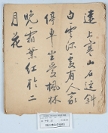 遠上寒山石逕斜
白雲深處有人家
停車坐愛楓林
晚霜葉紅於二
月花